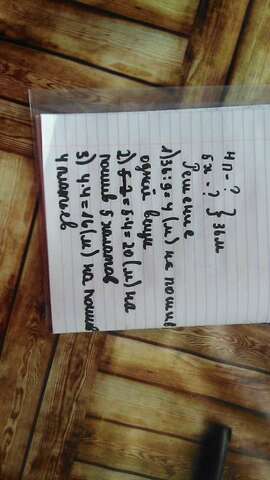 4п - ?
5х - ? } 36 м
Решение
1) 36 : 9 = 4 (м) на пошив
одной вещи
2) 5 · 4 = 20 (м) на
пошив 5 халатов
3) 4 · 4 = 16 (м) на пошив
4 платьев